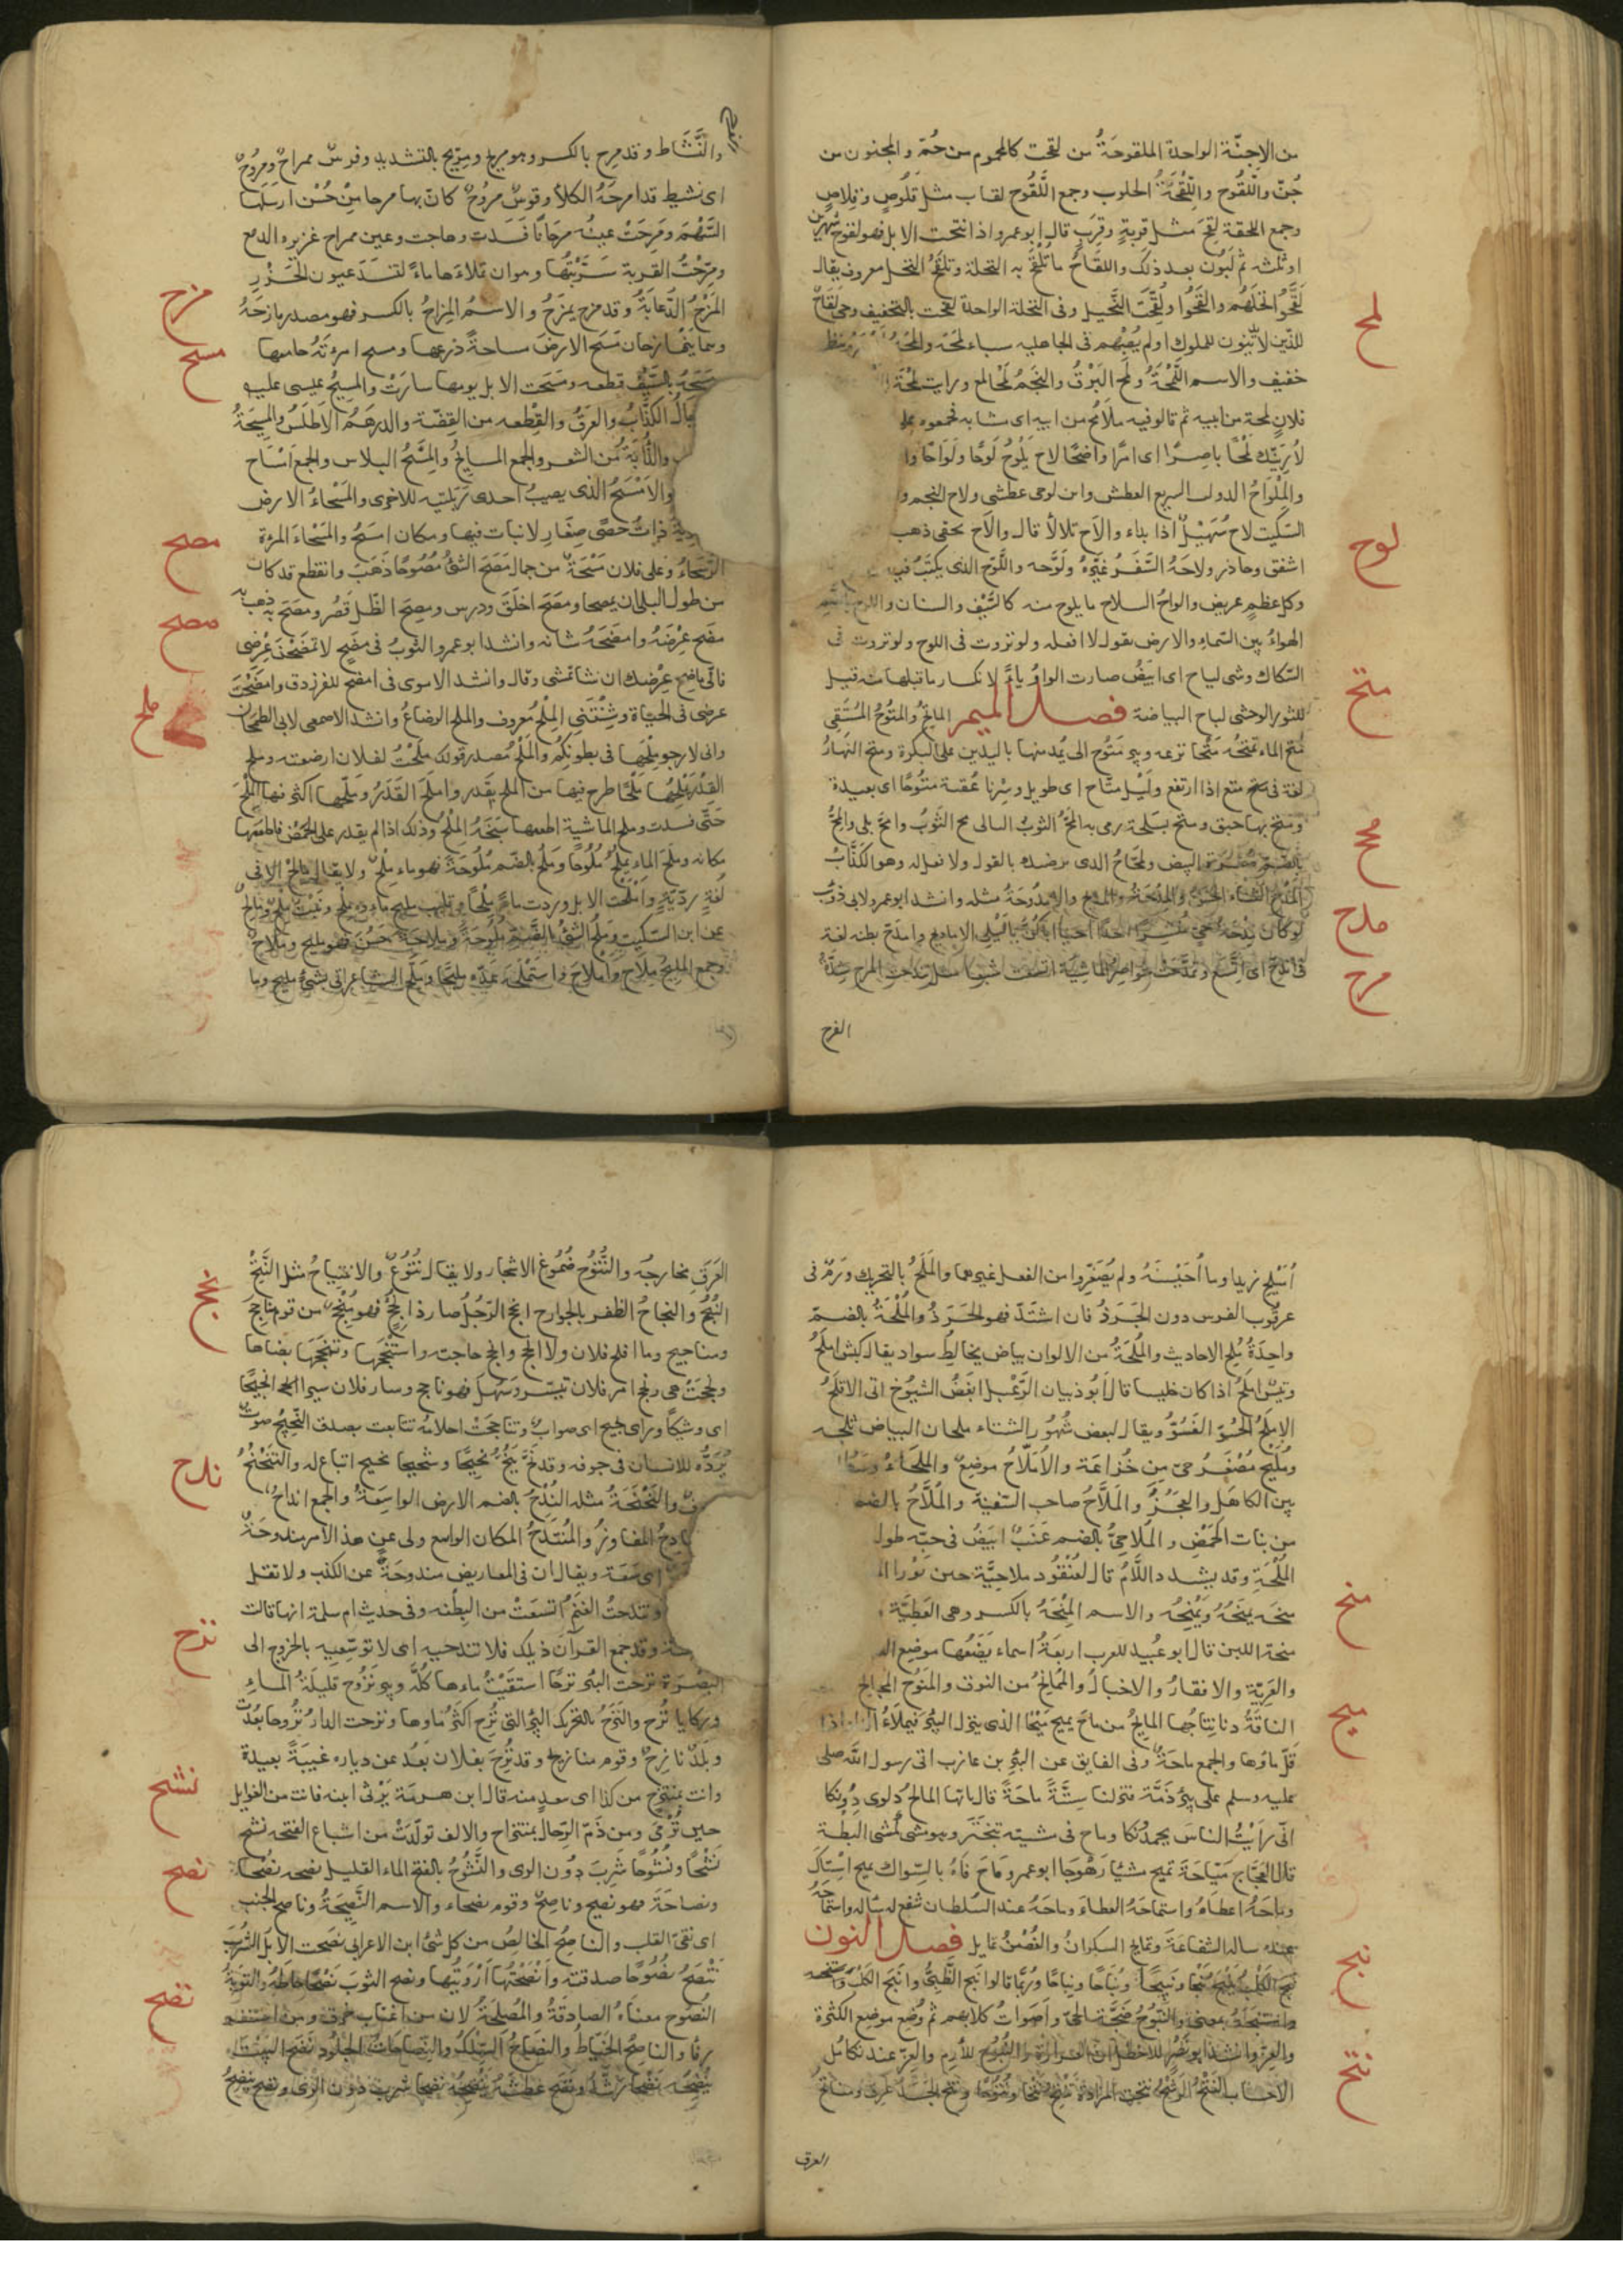 من الاجنّة الواحدة الملقوحَةُ من لقحت كالمحموم من حُمّ والمجنون من
جُنّ واللّقُوح واللِّقْحَةُ الحلوب وجمع اللَّقُوح لقاح مثل قَلُوص وقِلاص
وجمع اللقحة لِقَح مثل قربةٍ وقِرَبٍ قال ابو عمرو اذا نتجت الابل فهو لقوح شهرين
او ثلثه ثم لَبُون بعد ذلك واللقَاحُ ما تُلقَحُ به النخلة وتلقيحُ النخل معروف يقال
لَقَّحُوا نخلَهُم والقَحُوا ولُقّحَت النَّخيل وفى النخلة الواحدة لقحت بالتخفيف وحى لَقَاحٌ
للذين لا يَدينون للملوك او لم يُصِبْهم فى الجاهليه سباء لمحَه والمَحَهُ
خفيف والاسم اللّمْحَةُ ولَمح البَرْقُ والنَّجَمُ لمحًا لمع ورايت لَمْحَةَ
فلانٍ لمحة من ابيه ثم قالوا فيه ملامُح من ابيه اى مشابه فجمعوه
لَأُرِيَنّك لَمْحًا باصِرًا اى امرًا واضحًا لاح يَلُوحُ لَوْحًا ولُوَاحًا
والمِلْوَاحُ السريع العطش وابل لوحى عطشى ولاح النجم
السّكيت لاح سُهَيْلٌ اذا بداء والاح تلالأ قال والاح بحقى ذهب
اشفق وحاذر ولاحَهُ السَّفَرُ غيَّرهُ ولَوَّحه واللَّوْح الذى يكتَبُ فيه
وكل عظمٍ عريض والواحُ السلاح ما يلوح منه كالسَّيْف والسنان واللوح
الهواءُ بين السّماء والارض يقول لا افعله ولو نزوت فى اللوح ولو نزوت فى
السّكاك وشى لياح اى ابيَضُ صارت الواوُ ياءً لانكسار ما قبلها منه قيل
للثور الوحشى لياح لبياضه فصل الميم الماتحُ والمتُوحُ المُستَقِى
مَتح الماء يَمْتَحُه مَتْحًا نزعه وبير مَتُوح الى يُمد منها باليدين على البكرة ومتح النهارُ
لغة فى متع اذا ارتفع ولَيْل متّاح اى طويل وسِرْنا عُقبة متُوحًا اى بعيدة
ومتح بها حبق ومتح بسَلْحه رمى به المَحّ الثوبُ البالى مح الثَّوبُ وامحَّ بلى والمُحُّ
بالضم صُفْرَة البيض والمحّاحُ الذى يرضيك بالقول ولا فعل له وهو الكذّابُ
المَدح الثناء الحَسَنُ والمِدْحَةُ والمديح والاُمدُوحَةُ مثله وانشد ابو عمرو لابى ذويب
لو كان مِدْحَةُ حَىٍّ احدًا احيا اباكُنّ يا لَيْلَى الاماديح وامدَحّ بطنه لغة
فى اندَحّ اى اتّسع وتمدَّحَتْ خواصِرُ الماشِيَة اتسعت شبعًا مثل تندحت المرح شدّةُ
الفرح
لمح
لوح
متح
محح
مدح
مرح
الفرح
والنَّشَاط وقد مرِح بالكسر وهو مرِح ومِرّيح بالتشديد وفرسٌ ممراحٌ ومرُوحٌ
اى نشيط قد امرحَهُ الكلاُ وقوسٌ مروُحٌ كانّ بها مرحا مِنْ حُسْن ارسَلها
السَّهْم ومَرِحَتْ عينُه مرَحانًا فَسَدَت وهاجت وعين ممراح غزيره الدمع
ومَرَّحْتُ القربة سَرَّبْتُها وهو ان تملاءَها ماءً لتنسَدّ عيون الخَرْزِ
المَزْحُ الدُّعَابَةُ وقد مزح يمزَحُ والاسمُ المُزاحُ بالكسر فهو مصدر مازحَهُ
وهما يتمازحان مَسَح الارضَ مساحةً ذرعها ومسح امرءتَه جامعها
مَسَحَهُ بالسَّيْف قطعه ومَسَحت الابل يومها سارَتْ والمَسِيحُ عيسى عليه
جالُ الكذّابُ والعرَقُ والقِطعه من الفِضّة والدرهَمُ الاطلَسُ والمسِيحَةُ
والذُّابَةُ من الشعر والجمع المسايحُ والمِسْحُ البلاس والجمع امْسَاح
والاَمْسَحُ الذى يصيبُ احدى رَبَلَتَيْه للاخرى والمَسْحاءُ الارض
ذاتُ حصًى صِغَار لا نبات فيها ومكان امسَحُ والمَسْحاءُ المرءة
الرَّسْحاءُ وعلى فلان مَسْحَةٌ من جمال مَصَحَ الشئُ مُصُوحًا ذَهَبَ وانقطع قد كاد
من طول البلى ان يمصحا ومصَح اخلَقَ ودرس ومصِح الظّل قَصُر ومصَح به ذهب به
مضح عِرْضَهُ وامضَحَهُ شانه وانشد ابو عمرو
عِرضى فى الحيَاة وشِنْتَنِى المِلْحُ معروف والملح الرضاعُ وانشد الاصمعى لابى الطمحان
وانى لارجو مِلْحَهَا فى بطونكم والمَلْحُ مصدر قولك مَلَحْتُ لفلان ارضعته وملح
القِدْرَ يملِحُها مَلْحًا طرح فيها من الملح بقَدر واملَحَ القَدَرُ ومَلّحها اكثر فيها المِلْحَ
حتّى فسدت وملح الماشية اطعمها سَبَخَةُ المِلْحِ وذلك اذا لم يقدر على الحمْض فاطعَمَها
مكانه وملَح الماء يملُحُ مُلُوحًا ومَلُح بالضّم مُلُوحَةً فهو ماء مِلْحٌ ولا يقال مالحٌ الا فى
لُغةٍ رَدِيّةٍ واملَحْت الابل وردت ماءً مِلْحًا
عن ابن السكيت ومَلُح الشئُ بالضّم مُلُوحَةً ومَلاحَةً حَسُنَ فهو مليح ومُلَاحٌ
وجمع المليح مِلاح واملاحٌ واستَمْلَحَهُ عدّه مليحًا وملّح الشاعر اتى بشئ مليح وما
مزح
مسح
مصح
مضح
ملح
اُمَيْلح زيدا وما اُحَيْسنَهُ ولم يُصَغِّروا من الفعل غيرهما والمَلَحُ بالتحريك وَرَمٌ فى
عرقُوب الفرس دون الجَرَذُ فان اشتدّ فهو الجَرَذُ والمُلْحَةُ بالضمّ
واحِدَةُ مُلح الاحاديث والمُلحَةُ من الالوان بياض يخالطُ سواد يقال كبش املحُ
وتيسٌ املحُ اذا كان خليسا قال اَبُو ذبيان الرَّعْبل ابغَضُ الشيُوخ الى الاقلَحُ
الاملَحُ الحسُوّ الفَسُوّ ويقال لبعض شُهُور الشتاء ملحان لبياض ثلجه
ومُليْح مُصَغّرُ حىّ مِن خُزاعَة والاُمْلاحُ موضِعٌ والملحَاءُ
بين الكاهل والعَجُز والمَلّاحُ صاحب السفينة والمُلّاحُ بالضم
من نبات الحَمْض والمُلاحِىُّ بالضم عِنَبٌ ابيَضُ فى حبّه طول
المُلْحَةِ وقد يشدد اللَّامُ قال لعُنْقُود ملاحيّة حين نَوّرا
منحَه يمنَحُهُ ويَمنِحُه والاسم المِنْحَةُ بالكسر وهى العَطيَّة
منحة اللبن قال ابو عُبيد للعرب اربَعَةُ اسماء يَضَعُها موضِع
والعَرِيّة والافقارُ والاخبالُ والمُمانِحُ من النوق والمَنوح المجالح
الناقَةُ دنا نِتَاجُها المايِحُ من ماحَ يميح مَيْحًا الذى ينزل البئرَ فيملاءُ اذا
قلّ ماؤها والجمع ماحَةٌ وفى الفايق عن البرِ بن عازب اتى رسول الله صلى
عليه وسلم على بئر ذَمّة فنزلنا سِتَّةً ماحَةً قال يا ايها المايحُ دلوى دُونكا
انّى رايتُ الناسَ يحمدُونكا وماح فى مشيته تبختَر وهو مشى كمشى البطّة
قال العجّاج مَيّاحَة تميح مشيًا رَهْوَجا ابو عمرو مَاحَ فاهُ بالسِّواك يميح اسْتاكَ
وماحَهُ اعطاهُ واستماحَهُ العطاء وماحَهُ عند السّلطان شفع له
عنده ساله الشفاعَةَ وتمايح السكرانُ والغُصْنُ تمايل فصل النون
نبح الكَلبُ يَنبَحُ نَبْحًا ونَبِيحًا ونُبَاحًا ونِبَاحًا ورُبّما قالوا نبَح الظّبىُ وانبَح الكلبَ واستنبحه
بمعنى والنُّبُوحُ ضَجّة الحىّ واَصوَاتُ كلابهم ثم وُضِع موضِع الكثرة
والعِزّ وانشد ابو نَصر للاخطل انّ العرارة والنُبُوح للأرم والعِزّ عند تكامُل
الاحساب النَتْحُ الرشْحُ نتحت المزادة تَنتِحُ نتحًا ونُتُوحًا ونتح الجلد عَرِق ومناتحُ
العرق
منح
ميح
نبح
نتح
العَرَقِ مخارجُه والنُّتُوح صُمُوغ الاشجار ولا يقال نُتُوُعٌ والانتتاحُ مثل النَّتْحِ
النُجْحُ والنجاحُ الظفر بالحوايج انجح الرّجلُ صار ذا نُجْحٍ فهو مُنْجحٌ من قوم مناجِحَ
ومناجيح وما افلح فلان ولا انجح وانجح حاجته واستنجَحَها وتنَجّحَها بمعناها
ونجحَتْ هى ونجح امر فلان تيسّر وسَهُلَ فهو ناجح وسار فلان سيرا نجيحًا
اى وشيكًا وراى نجيح اى صوابٌ وتناجحَتْ احلامُه تتابعت بصدق النَّحِيحُ صَوتٌ
يُرَدّدُه الانسان فى جوفه وقد نحَّ يَنِحُّ نحِيحًا وشحيحا نحيح اتباع له والتنَحْنحُ
والنَّحْنَحَةُ مثله النُدْحُ بالضم الارض الواسِعَةُ والجمع انداحٌ
المفاوزُ والمُنتدَحُ المكان الواسع ولى عن هذا الامر مندوحَةٌ
اى سَعَة ويقال ان فى المعاريض مندوحَةً عن الكذب ولا تقل
وتندحتْ الغنمُ اتسعَتْ من البِطنه وفى حديث ام سلمة انها قالت
وقد جمع القرآنَ ذيلك فلا تندحيه اى لا توسّعيه بالخروج الى
البَصرَة نزحت البئر نزحًا استقيْتُ ماءها كلّه وبير نَزُوح قليلَةُ الماءِ
وركايا نُزُح والنَزَحُ بالتحريك البئر التى نُزِح اكثَرُ ماءوها ونزحت الدارُ نُزُوحا بعُدَتْ
وبلَدٌ نازِحٌ وقوم منازيح وقد نُزِحَ بفلان بَعُد عن دياره غيبَةً بعيدة
وانت بمنتزَح من كذا اى ببعدٍ منه قال ابن هرمَة يَرْثى ابنه فانت من الغوايل
حين تُرْمَى ومن ذَمّ الرّجال بمنتزاح والالف تولّدَتْ من اشباع الفتحه نشح
نَشْحًا ونُشُوحًا شَرِبَ دُون الرى والنَّشُوحُ بالفتح الماء القليل نصحه نُصْحًا
ونصاحَةً فهو نصيح وناصِحٌ وقوم نصحاء والاسم النَّصِيحَةُ وناصح الجَيب
اى نقىّ القلب والناصِحُ الخالِصُ من كل شئ ابن الاعرابى نصَحت الابلُ الشُّرْبَ
تَنْصَحُ نُصُوحًا صدقته واَنْصَحْتُها اَرْوَيْتُها ونصح الثوبَ نَصْحًا خاطَهُ والتوبَةُ
النَّصُوح معناهُ الصادقَةُ والمُصلِحَةُ لان من اغتاب خرق ومن استغفر
رفا والناصِحُ الخَيّاطُ والنِصَاحُ السِّلكُ والنِصَاحاتُ الجلُود نَضَح البَيْتَ
يَنْضِحُه نَضْحا رَشّه ونضح عَطَشَهُ يَنْضِحُه نضحًا شرب دُون الرّى ونضح يَنضِحُ
نجح
ندح
نزح
نشح
نصح
نضح